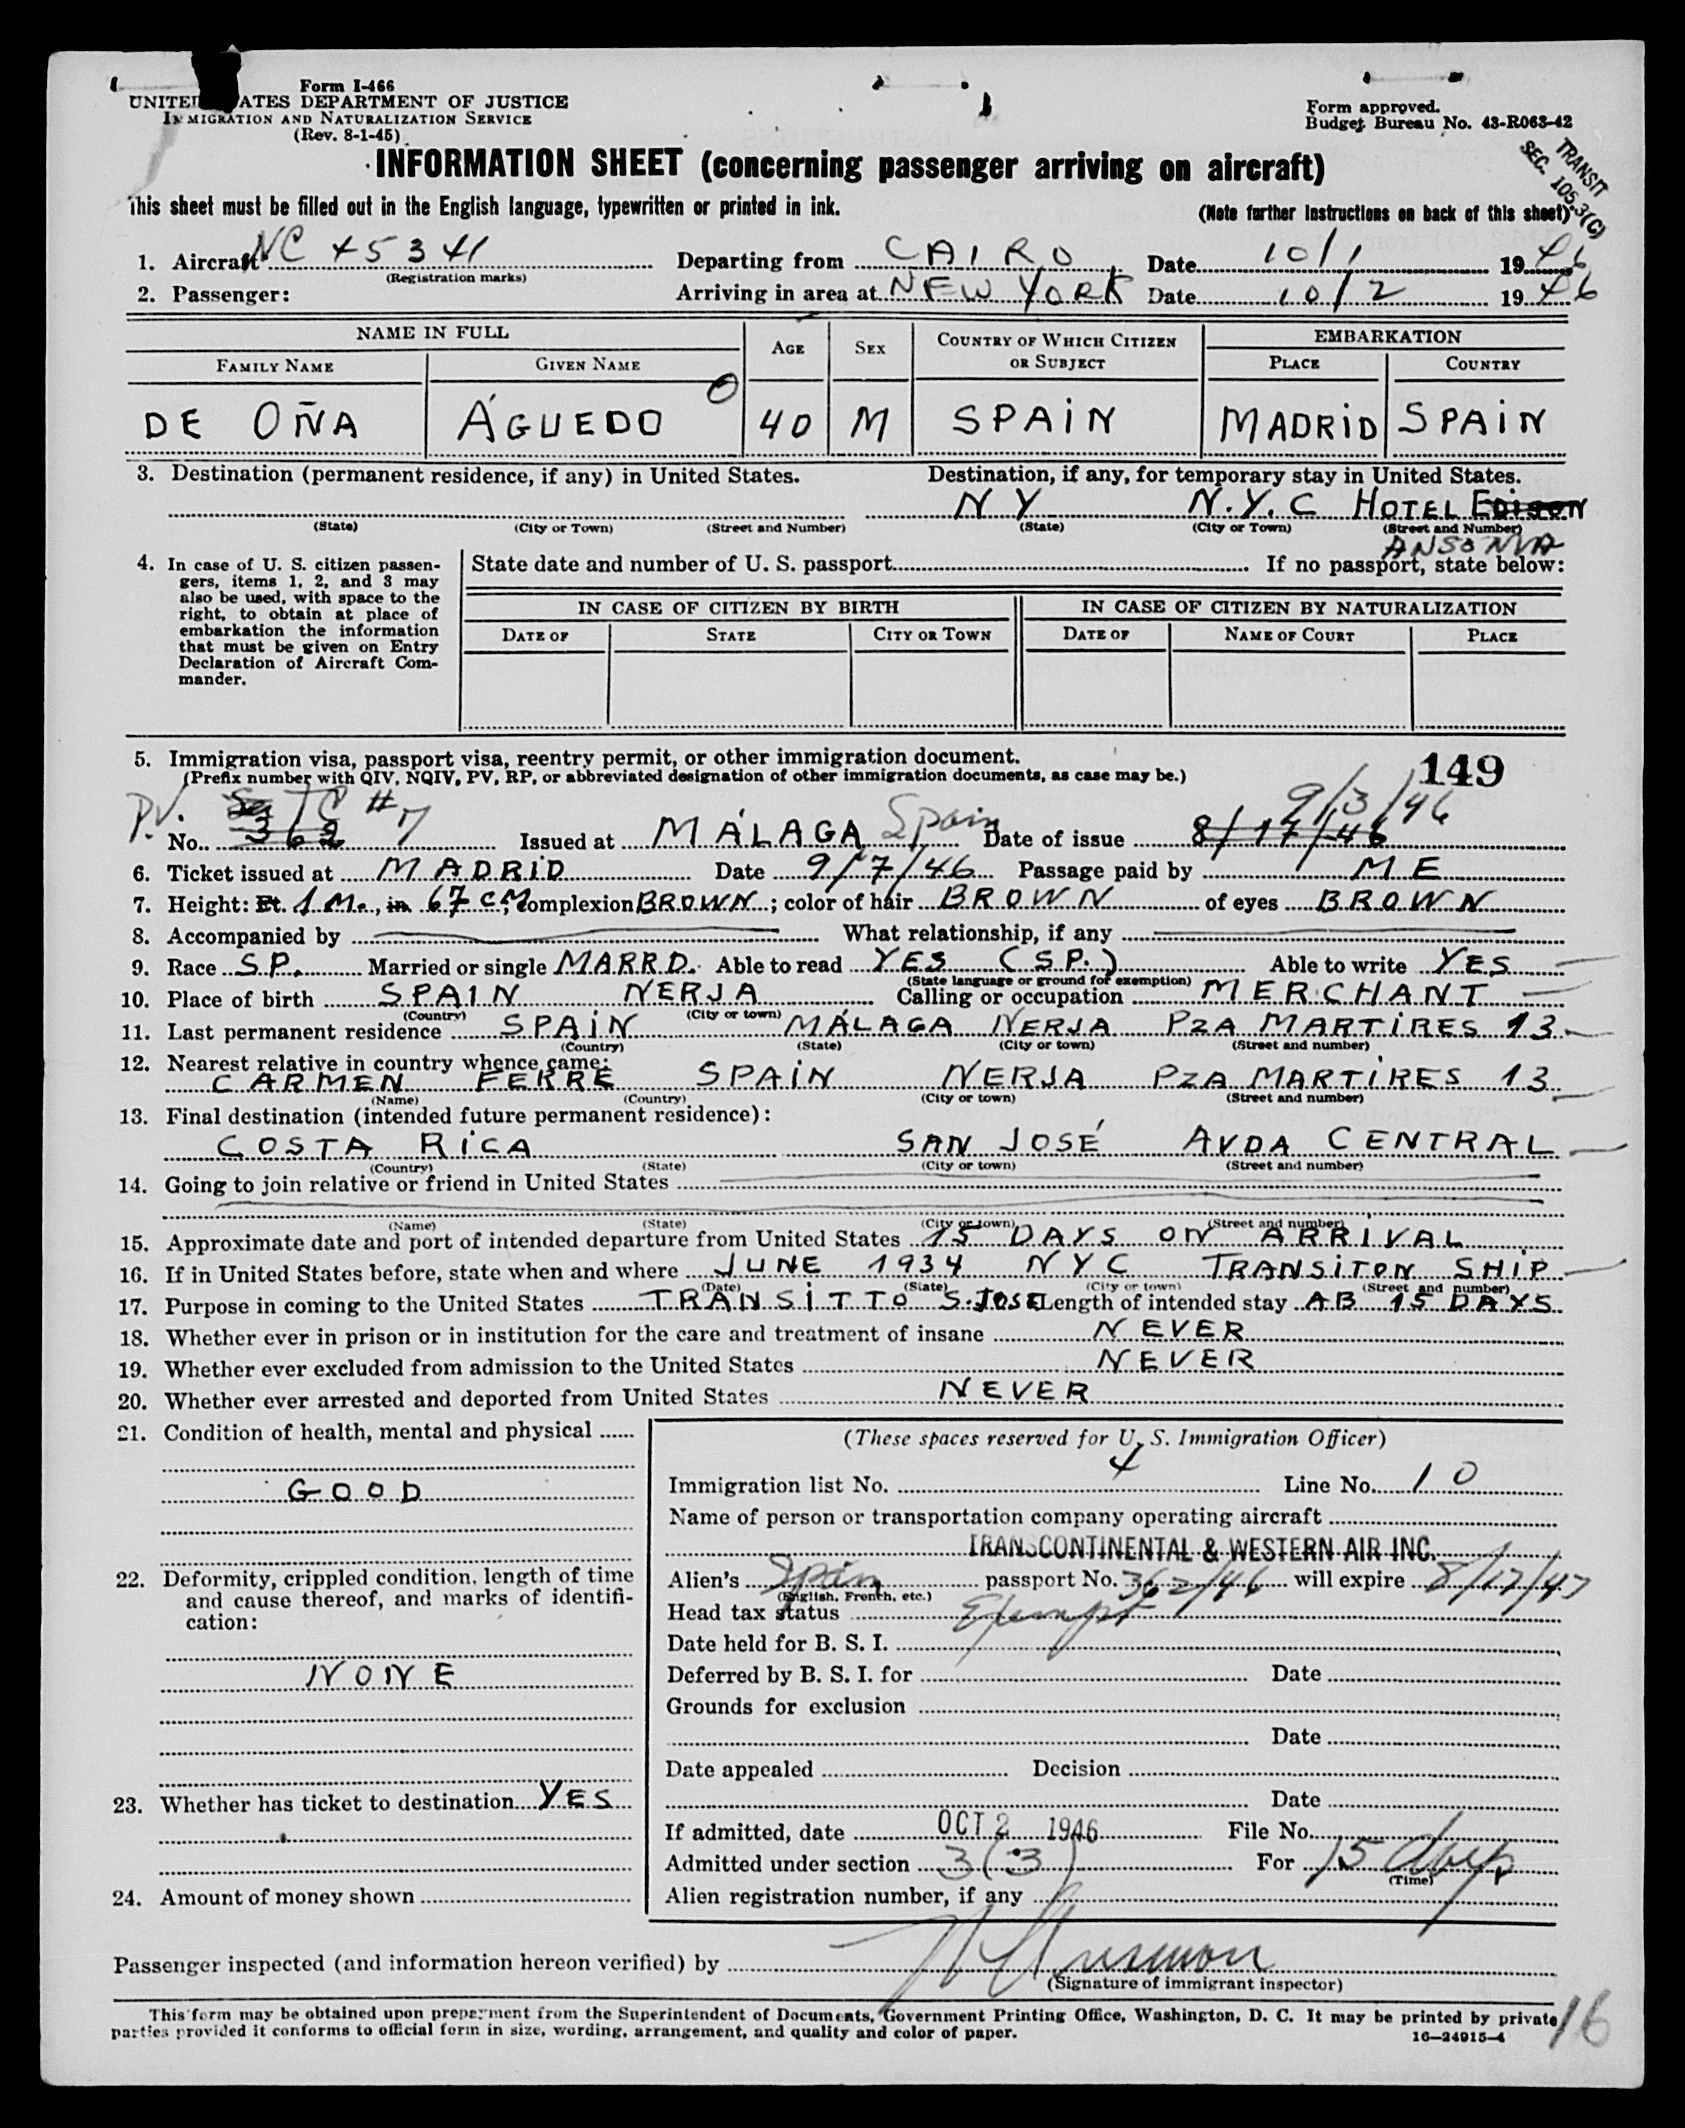 Form I-466
UNITED STATES DEPARTMENT OF JUSTICE
IMMIGRATION AND NATURALIZATION SERVICE
(Rev. 8-1-45)
Form approved.
Budget Bureau No. 43-R063-42
TRANSIT
SEC. 105.3(C)
INFORMATION SHEET (concerning passenger arriving on aircraft)
This sheet must be filled out in the English language, typewritten or printed in ink.
(Note further instructions on back of this sheet)
1. Aircraft NC 45341 Departing from CAIRO Date 10/1 1946
(Registration marks)
2. Passenger: Arriving in area at NEW YORK Date 10/2 1946
NAME IN FULL AGE SEX COUNTRY OF WHICH CITIZEN OR SUBJECT EMBARKATION
FAMILY NAME GIVEN NAME PLACE COUNTRY
DE OÑA ÁGUEDO 40 M SPAIN MADRID SPAIN
3. Destination (permanent residence, if any) in United States. Destination, if any, for temporary stay in United States.
NY N.Y.C HOTEL EDISON
(State) (City or Town) (Street and Number) (State) (City or Town) (Street and Number)
ANSONIA
4. In case of U. S. citizen passen- State date and number of U. S. passport If no passport, state below:
gers, items 1, 2, and 3 may
also be used, with space to the
right, to obtain at place of
embarkation the information
that must be given on Entry
Declaration of Aircraft Com-
mander.
IN CASE OF CITIZEN BY BIRTH IN CASE OF CITIZEN BY NATURALIZATION
DATE OF STATE CITY OR TOWN DATE OF NAME OF COURT PLACE
5. Immigration visa, passport visa, reentry permit, or other immigration document.
(Prefix number with QIV, NQIV, PV, RP, or abbreviated designation of other immigration documents, as case may be.)
149
PV. TC # 7 9/3/46
No. 362 Issued at MÁLAGA Spain Date of issue 8/17/46
6. Ticket issued at MADRID Date 9/7/46 Passage paid by ME
7. Height: Ft. 1 M., in 67 CM; Complexion BROWN; color of hair BROWN of eyes BROWN
8. Accompanied by What relationship, if any
9. Race SP. Married or single MARRD. Able to read YES (SP.) Able to write YES
(State language or ground for exemption)
10. Place of birth SPAIN NERJA Calling or occupation MERCHANT
(Country) (City or town)
11. Last permanent residence SPAIN MÁLAGA NERJA PZA MARTIRES 13
(Country) (State) (City or town) (Street and number)
12. Nearest relative in country whence came:
CARMEN FERRE SPAIN NERJA PZA MARTIRES 13
(Name) (Country) (City or town) (Street and number)
13. Final destination (intended future permanent residence):
COSTA RICA SAN JOSÉ AVDA CENTRAL
(Country) (State) (City or town) (Street and number)
14. Going to join relative or friend in United States
(Name) (State) (City or town) (Street and number)
15. Approximate date and port of intended departure from United States 15 DAYS ON ARRIVAL
16. If in United States before, state when and where JUNE 1934 NYC TRANSIT ON SHIP
(Date) (State) (City or town) (Street and number)
17. Purpose in coming to the United States TRANSIT TO S. JOSE Length of intended stay AB 15 DAYS
18. Whether ever in prison or in institution for the care and treatment of insane NEVER
19. Whether ever excluded from admission to the United States NEVER
20. Whether ever arrested and deported from United States NEVER
21. Condition of health, mental and physical
GOOD
22. Deformity, crippled condition, length of time
and cause thereof, and marks of identifi-
cation:
NONE
23. Whether has ticket to destination YES
24. Amount of money shown
(These spaces reserved for U. S. Immigration Officer)
Immigration list No. 4 Line No. 10
Name of person or transportation company operating aircraft
TRANSCONTINENTAL & WESTERN AIR INC.
Alien's Spain passport No. 362/46 will expire 8/17/47
(English, French, etc.)
Head tax status Exempt
Date held for B. S. I.
Deferred by B. S. I. for Date
Grounds for exclusion
Date
Date appealed Decision
Date
If admitted, date OCT 2 1946 File No.
Admitted under section 3(3) For 15 days
(Time)
Alien registration number, if any
Passenger inspected (and information hereon verified) by
(Signature of immigrant inspector)
This form may be obtained upon prepayment from the Superintendent of Documents, Government Printing Office, Washington, D. C. It may be printed by private
parties provided it conforms to official form in size, wording, arrangement, and quality and color of paper.
16—24915-4
16